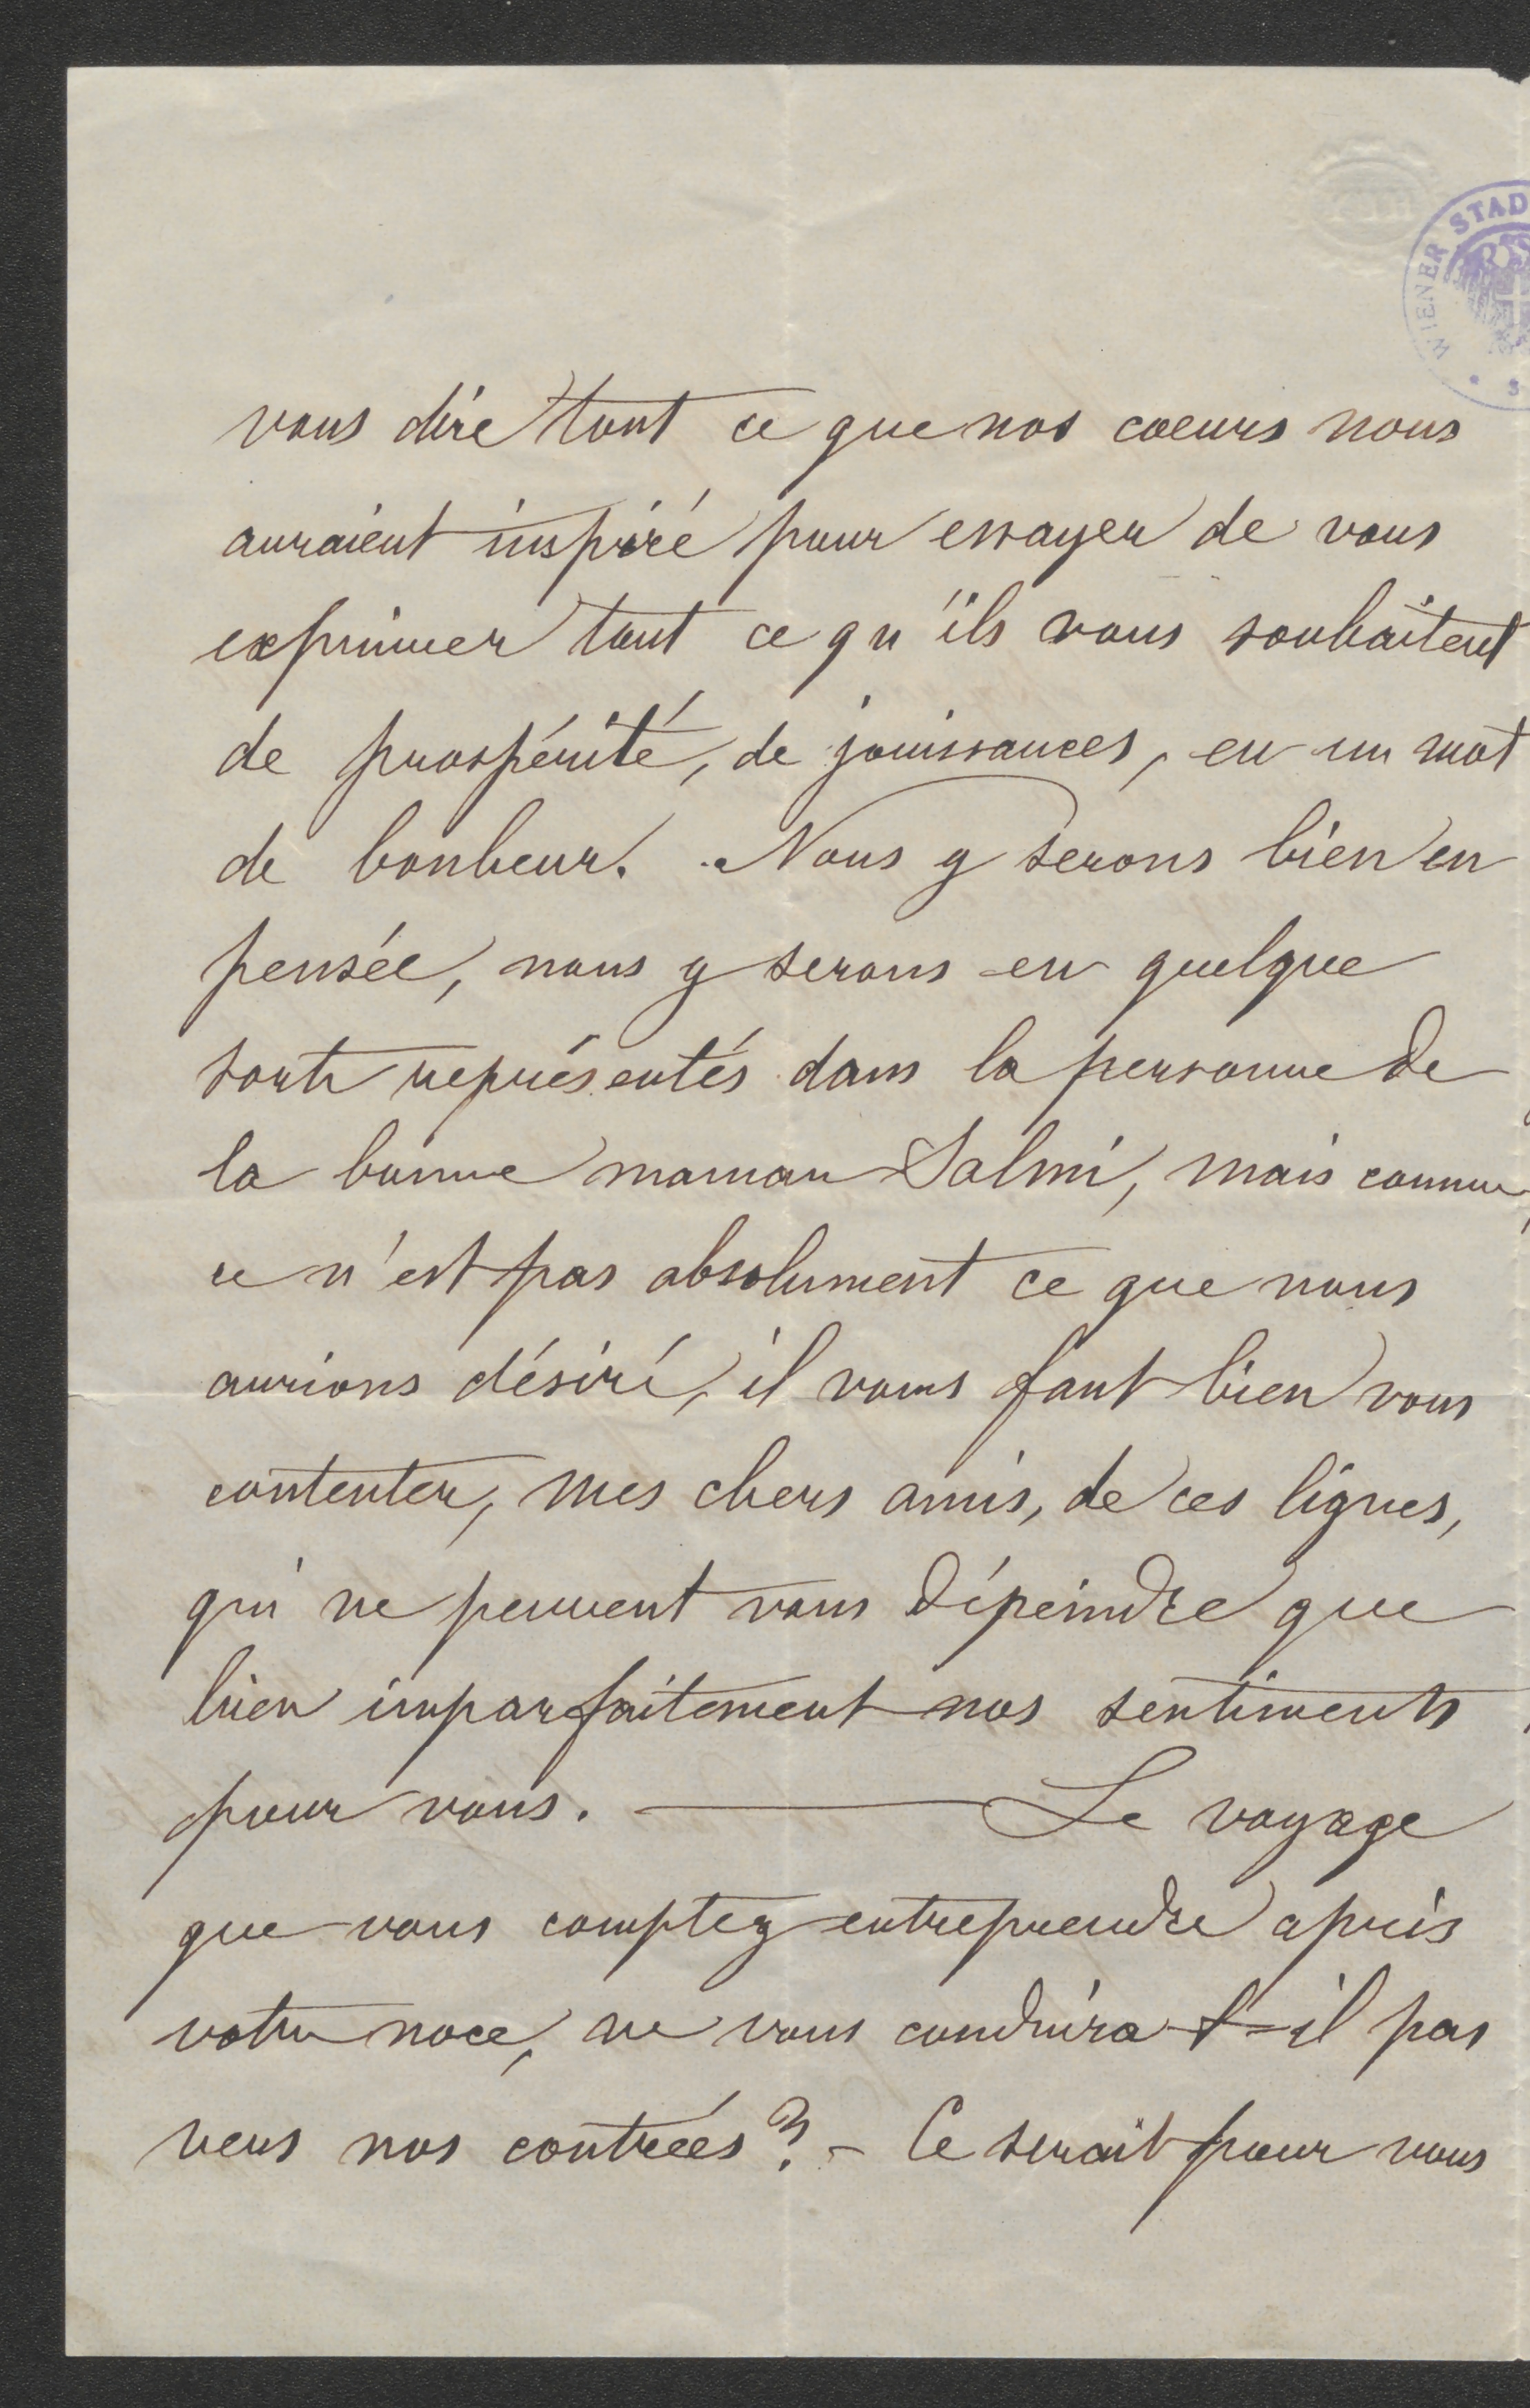 WIENER STAD
vous dire tout ce que nos coeurs nous
auraient inspiré pour essayer de vous
exprimer tout ce qu'ils vous souhaitent
de prospérité, de jouissances, en un mot
de bonheur. Nous y serons bien en
pensée, nous y serons en quelque
sorte représentés dans la personne de
la bonne maman Salmi, mais comme
ce n'est pas absolument ce que nous
aurions désiré, il vous faut bien vous
contenter, mes chers amis, de ces lignes,
qui ne peuvent vous dépeindre que
bien imparfaitement nos sentiments
pour vous. — Le voyage
que vous comptez entreprendre après
votre noce, ne vous conduira-t-il pas
vers nos contrées? - Ce serait pour nous